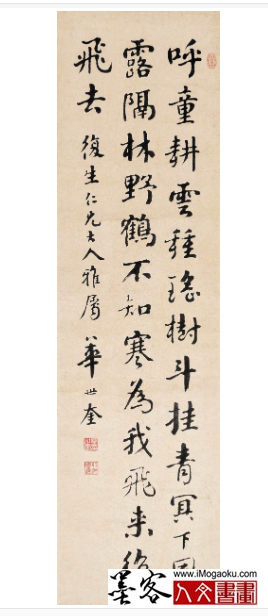 呼童耕雲種瑤樹斗挂青冥下
露隔林野鶴不知寒為我飛來
飛去
復生仁兄大人雅屬
華世奎
墨客
www.iMogaoku.com
人文書畫